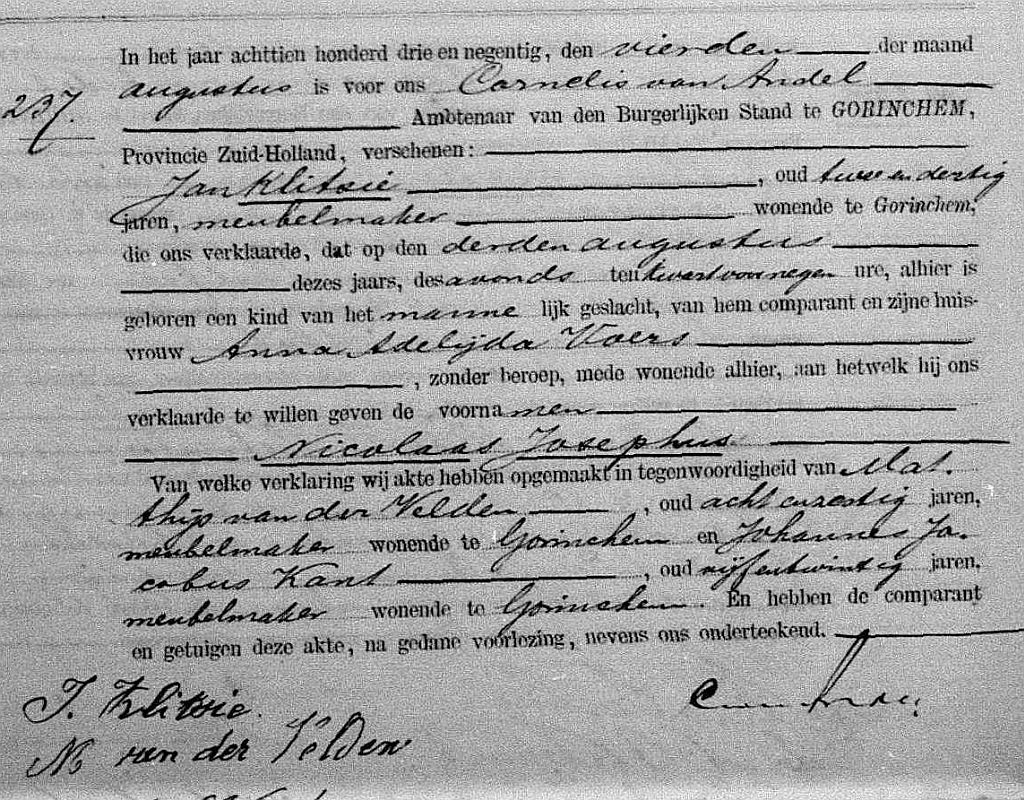 In het jaar achttien honderd drie en negentig, den vierden der maand
237.
augustus is voor ons Cornelis van Andel
Ambtenaar van den Burgerlijken Stand te GORINCHEM,
Provincie Zuid-Holland, verschenen:
Jan Klitsie, oud twee en dertig
jaren, meubelmaker wonende te Gorinchem,
die ons verklaarde, dat op den derden augustus
dezes jaars, des avonds ten kwart voor negen ure, alhier is
geboren een kind van het manne lijk geslacht, van hem comparant en zijne huis-
vrouw Anna Adelijda Vaers
, zonder beroep, mede wonende alhier, aan hetwelk hij ons
verklaarde te willen geven de voorna men
Nicolaas Josephus
Van welke verklaring wij akte hebben opgemaakt in tegenwoordigheid van Mat-
thijs van der Velden, oud acht en zestig jaren,
meubelmaker wonende te Gorinchem en Johannes Ja-
cobus Kant, oud vijf en twintig jaren,
meubelmaker wonende te Gorinchem. En hebben de comparant
en getuigen deze akte, na gedane voorlezing, nevens ons onderteekend.
J. Klitsie.
M van der Velden